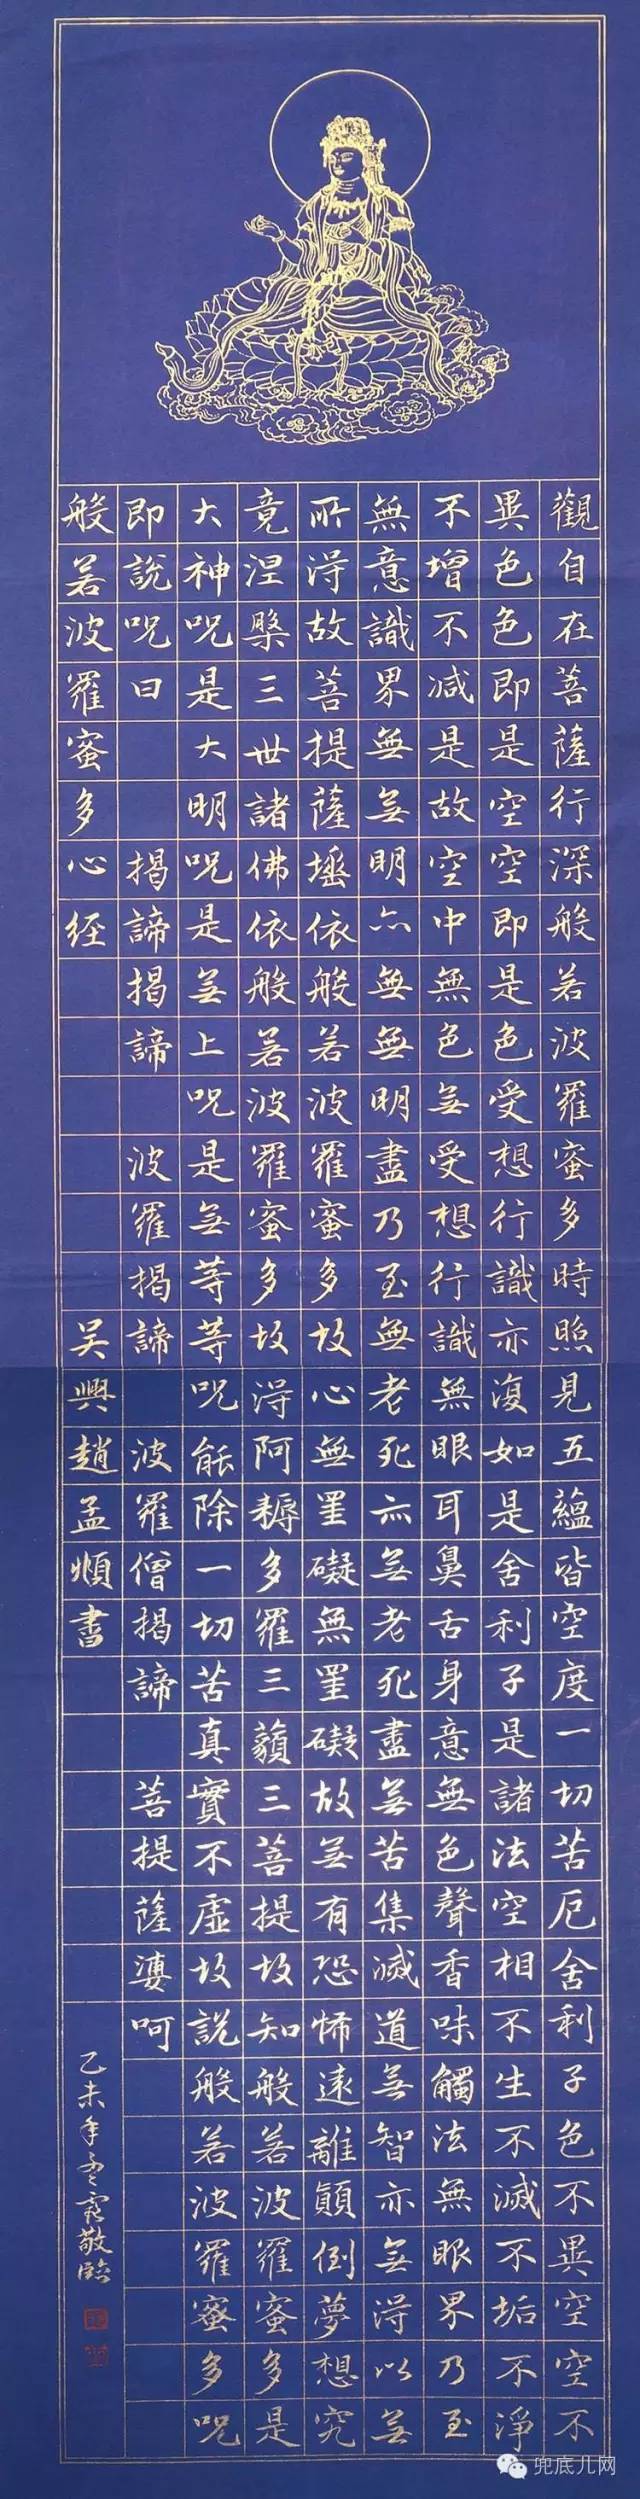 觀自在菩薩行深般若波羅蜜多時照見五蘊皆空度一切苦厄舍利子色不異空空不
異色色即是空空即是色受想行識亦復如是舍利子是諸法空相不生不滅不垢不淨
不增不減是故空中無色無受想行識無眼耳鼻舌身意無色聲香味觸法無眼界乃至
無意識界無無明亦無無明盡乃至無老死亦無老死盡無苦集滅道無智亦無得以無
所得故菩提薩埵依般若波羅蜜多故心無罣礙無罣礙故無有恐怖遠離顛倒夢想究
竟涅槃三世諸佛依般若波羅蜜多故得阿耨多羅三藐三菩提故知般若波羅蜜多是
大神呪是大明呪是無上呪是無等等呪能除一切苦真實不虛故說般若波羅蜜多呪
即說呪曰 揭諦揭諦 波羅揭諦 波羅僧揭諦 菩提薩婆呵
般若波羅蜜多心経 吴興趙孟頫書
乙未年 敬臨
兜底儿网